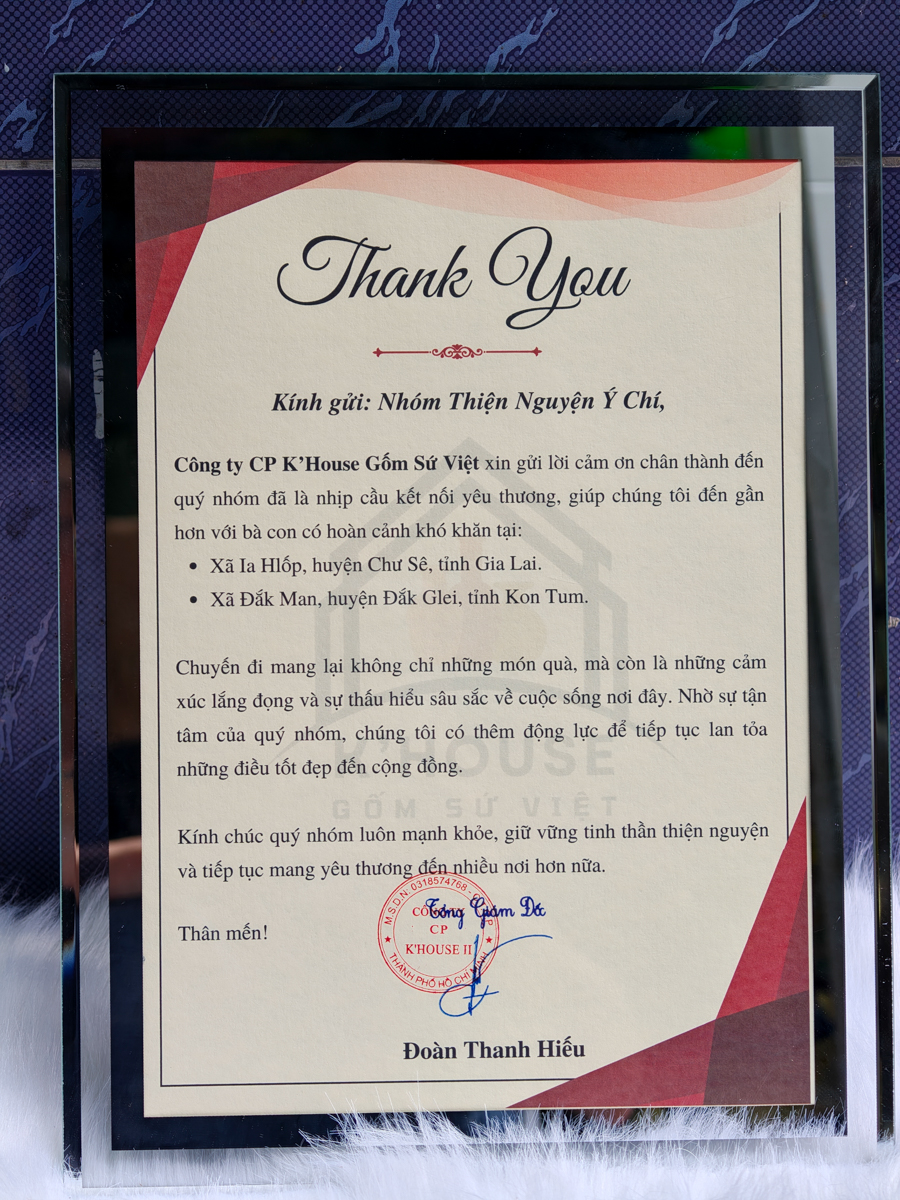 Thank You
Kính gửi: Nhóm Thiện Nguyện Ý Chí,
Công ty CP K'House Gốm Sứ Việt xin gửi lời cảm ơn chân thành đến
quý nhóm đã là nhịp cầu kết nối yêu thương, giúp chúng tôi đến gần
hơn với bà con có hoàn cảnh khó khăn tại:
• Xã Ia Hlốp, huyện Chư Sê, tỉnh Gia Lai.
• Xã Đắk Man, huyện Đắk Glei, tỉnh Kon Tum.
Chuyến đi mang lại không chỉ những món quà, mà còn là những cảm
xúc lắng đọng và sự thấu hiểu sâu sắc về cuộc sống nơi đây. Nhờ sự tận
tâm của quý nhóm, chúng tôi có thêm động lực để tiếp tục lan tỏa
những điều tốt đẹp đến cộng đồng.
K'HOUSE
GỐM SỨ VIỆT
Kính chúc quý nhóm luôn mạnh khỏe, giữ vững tinh thần thiện nguyện
và tiếp tục mang yêu thương đến nhiều nơi hơn nữa.
Thân mến!
M.S.D.N: 0318574768
Tổng Giám Đốc
CP
K'HOUSE II
THÀNH PHỐ HỒ CHÍ MINH
Đoàn Thanh Hiếu